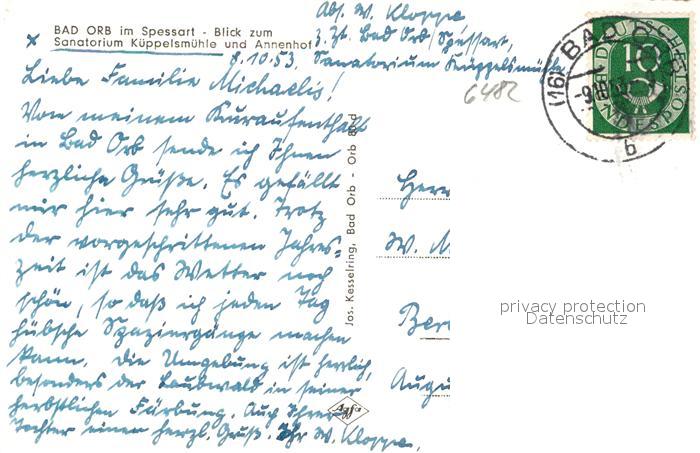 BAD ORB im Spessart - Blick zum
Sanatorium Küppelsmühle und Annenhof
Abs. W. Kloppe,
z. Zt. Bad Orb/Spessart,
Sanatorium Küppelsmühle
8.10.53.
6482
Liebe Familie Michaelis!
Von meinem Kuraufenthalt
in Bad Orb sende ich Ihnen
herzliche Grüße. Es gefällt
mir hier sehr gut. Trotz
der vorgeschrittenen Jahres-
zeit ist das Wetter noch
schön, so daß ich jeden Tag
hübsche Spaziergänge machen
kann. Die Umgebung ist herrlich,
besonders der Laubwald in seiner
herbstlichen Färbung. Auch Ihrer
Tochter einen herzl. Gruß. Ihr W. Kloppe.
Jos. Kesselring, Bad Orb - Orb
Agfa
(16) BAD
b
DEUTSCHE
BUNDESPOST
10
Herrn
W. M
Ber
Augu
privacy protection
Datenschutz